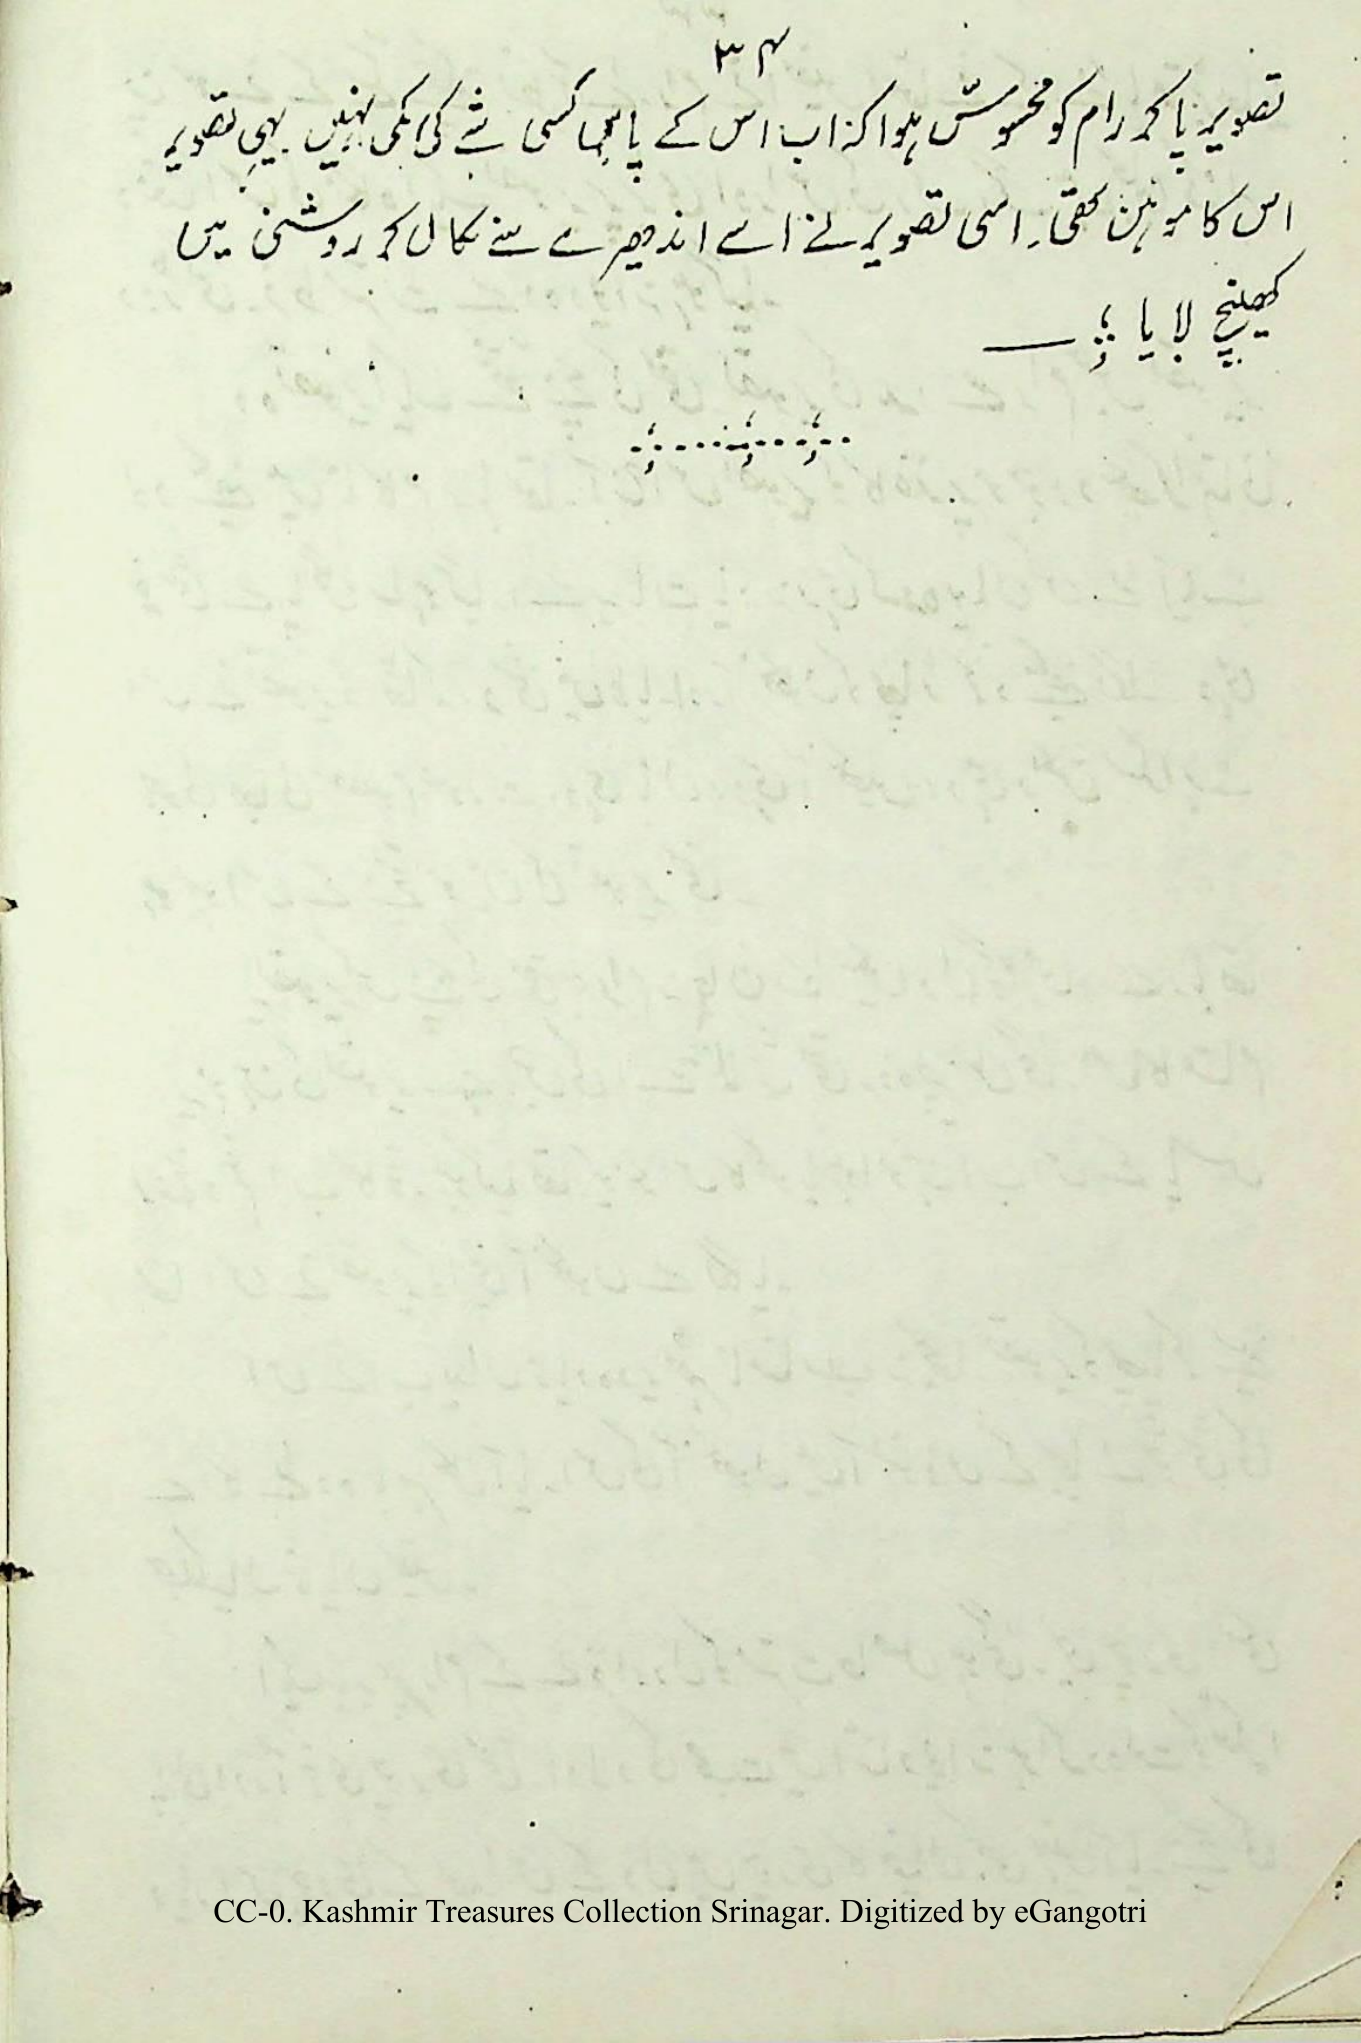 ۳۴
تصویر پا کر رام کو محسوس ہوا کہ اب اس کے پاس کسی شے کی کمی نہیں یہی تصویر
اس کا موہن تھی۔ اسی تصویر نے اسے اندھیرے سے نکال کر روشنی میں
کھینچ لایا ؛ ——
CC-0. Kashmir Treasures Collection Srinagar. Digitized by eGangotri